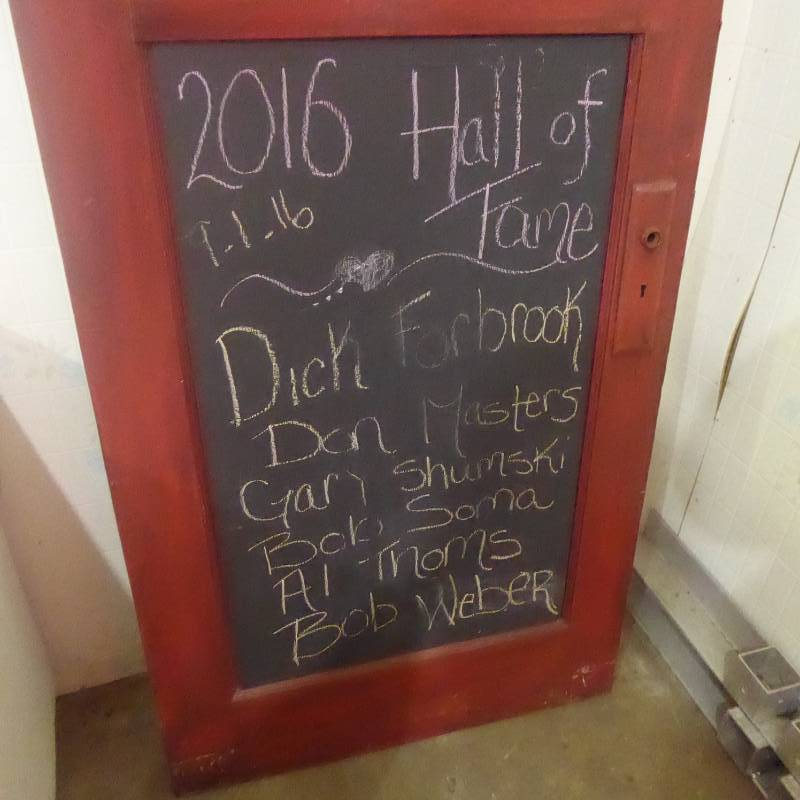 2016 Hall of
Fame
1.1.16
Dick Forbrook
Don Masters
Gary Shumski
Bob Soma
Al Thoms
Bob Weber